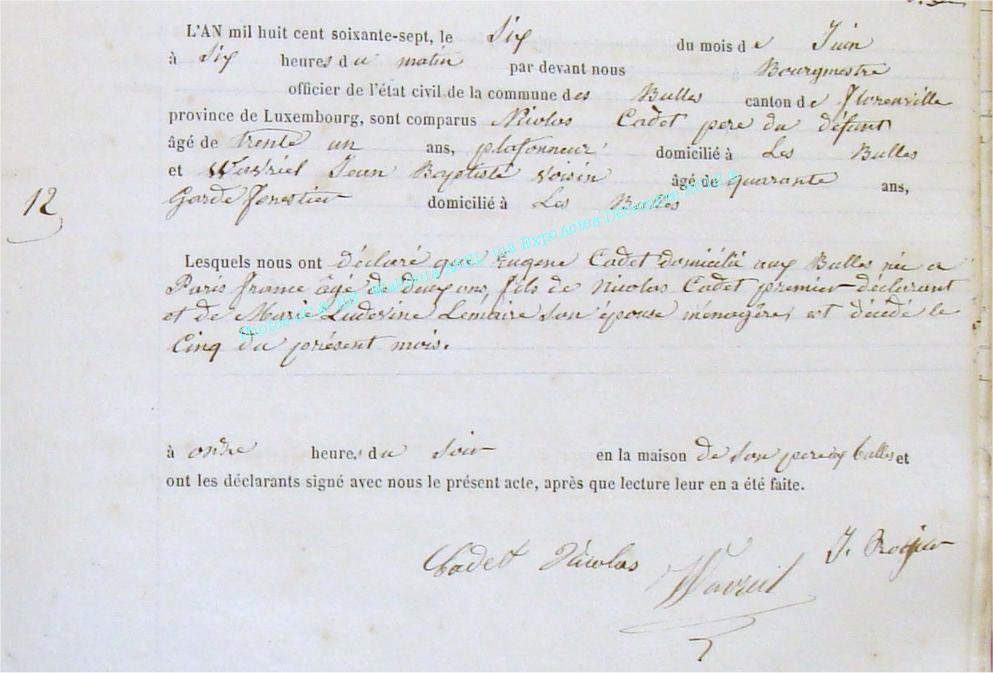 L'AN mil huit cent soixante-sept, le Six du mois de Juin
à Six heures du matin par devant nous Bourgmestre
officier de l'état civil de la commune des Bulles canton de Florenville
province de Luxembourg, sont comparus Nicolas Cadet pere du défunt
âgé de trente un ans, plafonneur domicilié à Les Bulles
et Wavriel Jean Baptiste voisin âgé de quarante ans,
12
Garde forestier domicilié à Les Bulles
Lesquels nous ont déclaré que Eugene Cadet domicilié aux Bulles née a
Paris france âgé de deux ans, fils de Nicolas Cadet premier déclarant
et de Marie Ludovine Lemaire son épouse ménagère, est décédé le
Cinq du présent mois.
à onze heures du soir en la maison de son pere aux bulles et
ont les déclarants signé avec nous le présent acte, après que lecture leur en a été faite.
Cadet Nicolas Wavriel J.